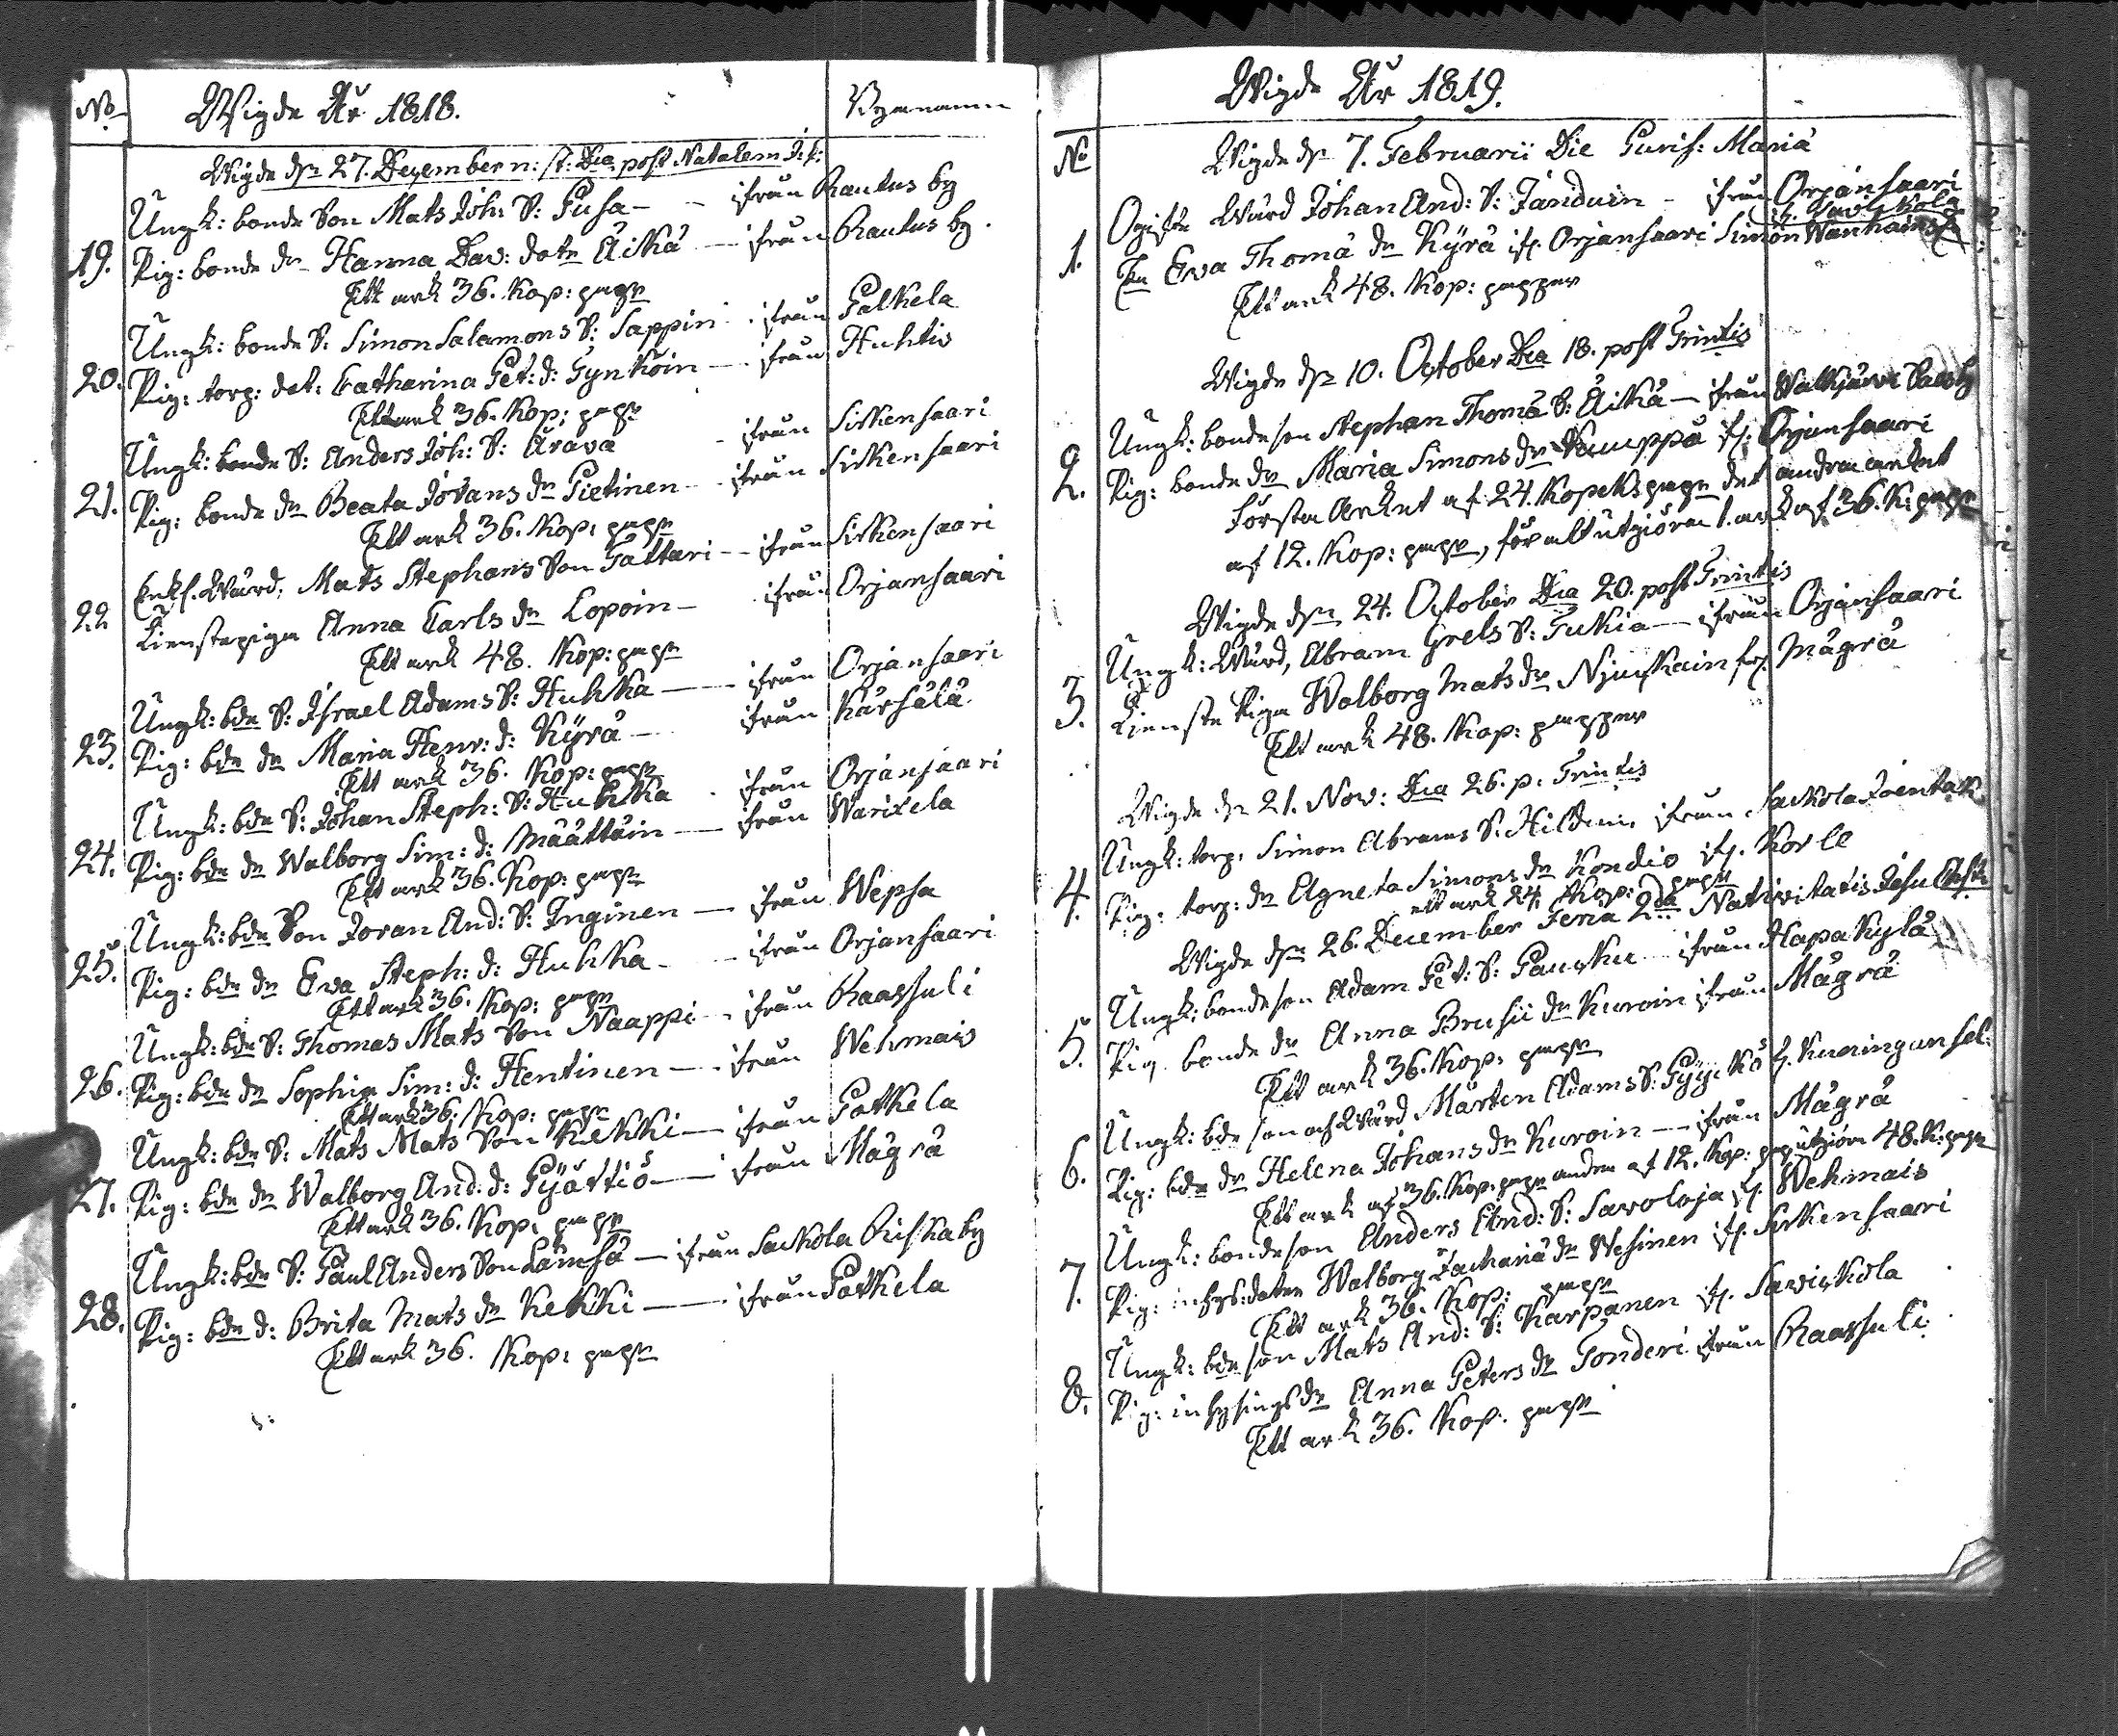 No Wigde År 1818. Bynamnn
Wigde dn 27. December n: st: Dca post Natalem J:
Ungk: bonde Son Mats Joh: S: Pusa - - ifrån Rautus by
19. Pig: bonde dr Hanna Dav: dotr Äikä - ifrån Rautus by.
Ett ark 36. Kop: papr
Ungk: bonde S: Simon Salamons S: Sappin - ifrån Palkela
20. Pig: torp: dot: Catharina Pet: d: Pynköin - ifrån Huhtis
Ett ark 36. Kop: papr
Ungk: bonde S: Anders Joh: S: Ärävä - ifrån Sirkensaari
21. Pig: bonde dr Beata Jörans dr Pietinen - ifrån Sirkensaari
Ett ark 36. Kop: papr
Enkl. Wärd. Mats Stephans Son Tattari - ifrån Sirkensaari
22 Tienstepiga Anna Carls dr Lopoin - ifrån Orjansaari
Ett ark 48. Kop: papr
Ungk: bde S: Israel Adams S: Huhka - ifrån Orjansaari
23. Pig: bde dr Maria Henr: d: Kyrä - ifrån Kärsälä
Ett ark 36. Kop: papr
Ungk: bde S: Johan Steph: S: Huhka - ifrån Orjansaari
24. Pig: bde dr Walborg Sim: d: Määttäin - ifrån Warixela
Ett ark 36. Kop: papr
Ungk: bde Son Joran And: S: Inginen - ifrån Wepsa
25. Pig: bde dr Ewa Steph: d: Huhka - - ifrån Orjansaari
Ett ark 36. Kop: papr
Ungk: bde S: Thomas Mats Son Naappi - ifrån Raassuli
26. Pig: bde dr Sophia Sim: d: Hentinen - ifrån Wehmais
Ett ark 36. Kop: papr
Ungk: bde S: Mats Mats Son Kekki - ifrån Potkela
27. Pig: bde dr Walborg And: d: Pyättiö - ifrån Mägrä
Ett ark 36. Kop: papr
Ungk: bde S: Påul Anders Son Lämsä - ifrån Sackola Riska by
28. Pig: bde d: Brita Mats dr Kekki - ifrån Potkela
Ett ark 36. Kop: papr
Wigde År 1819.
No Wigde dn 7. Februarii Die Purif: Mariä
Ogifte Wärd Johan And: S: Janduin - ifrån Orjansaari
1. En Ewa Thomä dr Kyrä if. Orjansaari Simon Wanhains
Ett ark 48. Kop: papper
Wigde dn 10. October Dca 18. post Trintis
Ungk: bondeson Stephan Thomä S: Äikä - ifrån Walkjärvi
2. Pig: bonde dr Maria Simons dr Kauppa if: Orjansaari
Första Arket af 24. Kopeks papr det andra arket
af 12. Kop: papr, för alt utgiöra 1. ark af 36. K: papr
Wigde dn 24. October Dca 20. post Trintis
Ungk: Wärd, Abram Grels S: Tukia - ifrån Orjansaari
3. Tienste Piga Walborg Mats dr Njuskain fr. Mägrä
Ett ark 48. Kop: papper
Wigde dn 21. Nov: Dca 26. p: Trintis
Ungk: torp: Simon Abrams S: Hilden, ifrån Sackola
4. Pig: torp: dr Agneta Simons dr Kondio if. Korle
ett ark 24. Kop: papr
Wigde dn 26. December Feria 2da Nativitatis Jesu
Ungk: bondeson Adam Pet: S: Pausku - ifrån Hapakylä
5. Pig. bonde dr Anna Brusii dr Kuroin ifrån Mägrä
Ett ark 36. Kop: papr
Ungk: bde son och Wärd Mårten Adams S: Pyykkö f.
6. Pig: bde dr Helena Johans dr Kuroin - ifrån Mägrä
Ett ark af 36. Kop: papr andra af 12. Kop: pap utgiöra 48. K: papr
Ungk: bondeson Anders And: S: Savoloja if. Wehmais
7. Pig: inhys: doter Walborg Zachariä dr Wesinen if. Sirkensaari
Ett ark 36. Kop: papr
Ungk: bde son Mats And: S: Karpanen if. Saviskola
8. Pig: inhysings dr Anna Peters dr Tonderi ifrån Raassuli
Ett ark 36. Kop: papr